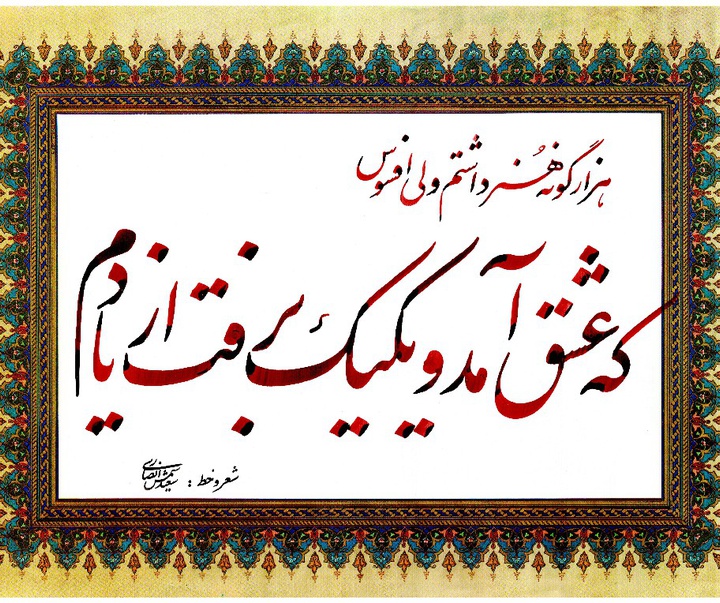 هزار گونه هُنر داشتم ولی افسوس
که عشق آمد و یکیک برفت از یادم
شعر و خط : سعید شمس انصاری